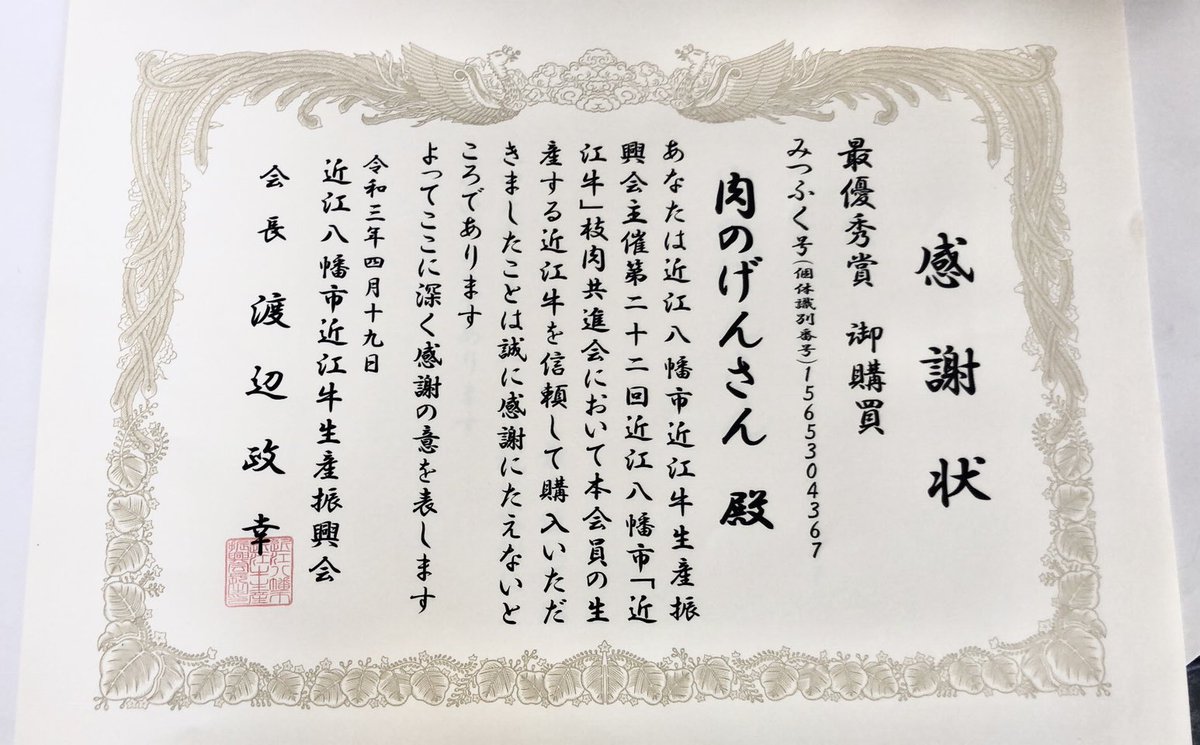 感謝状
最優秀賞 御購買
みつふく号(個体識別番号)1565304367
肉のげんさん 殿
あなたは近江八幡市近江牛生産振
興会主催第二十二回近江八幡市「近
江牛」枝肉共進会において本会員の生
産する近江牛を信頼して購入いただ
きましたことは誠に感謝にたえないと
ころであります
よってここに深く感謝の意を表します
令和三年四月十九日
近江八幡市近江牛生産振興会
会長 渡辺政幸